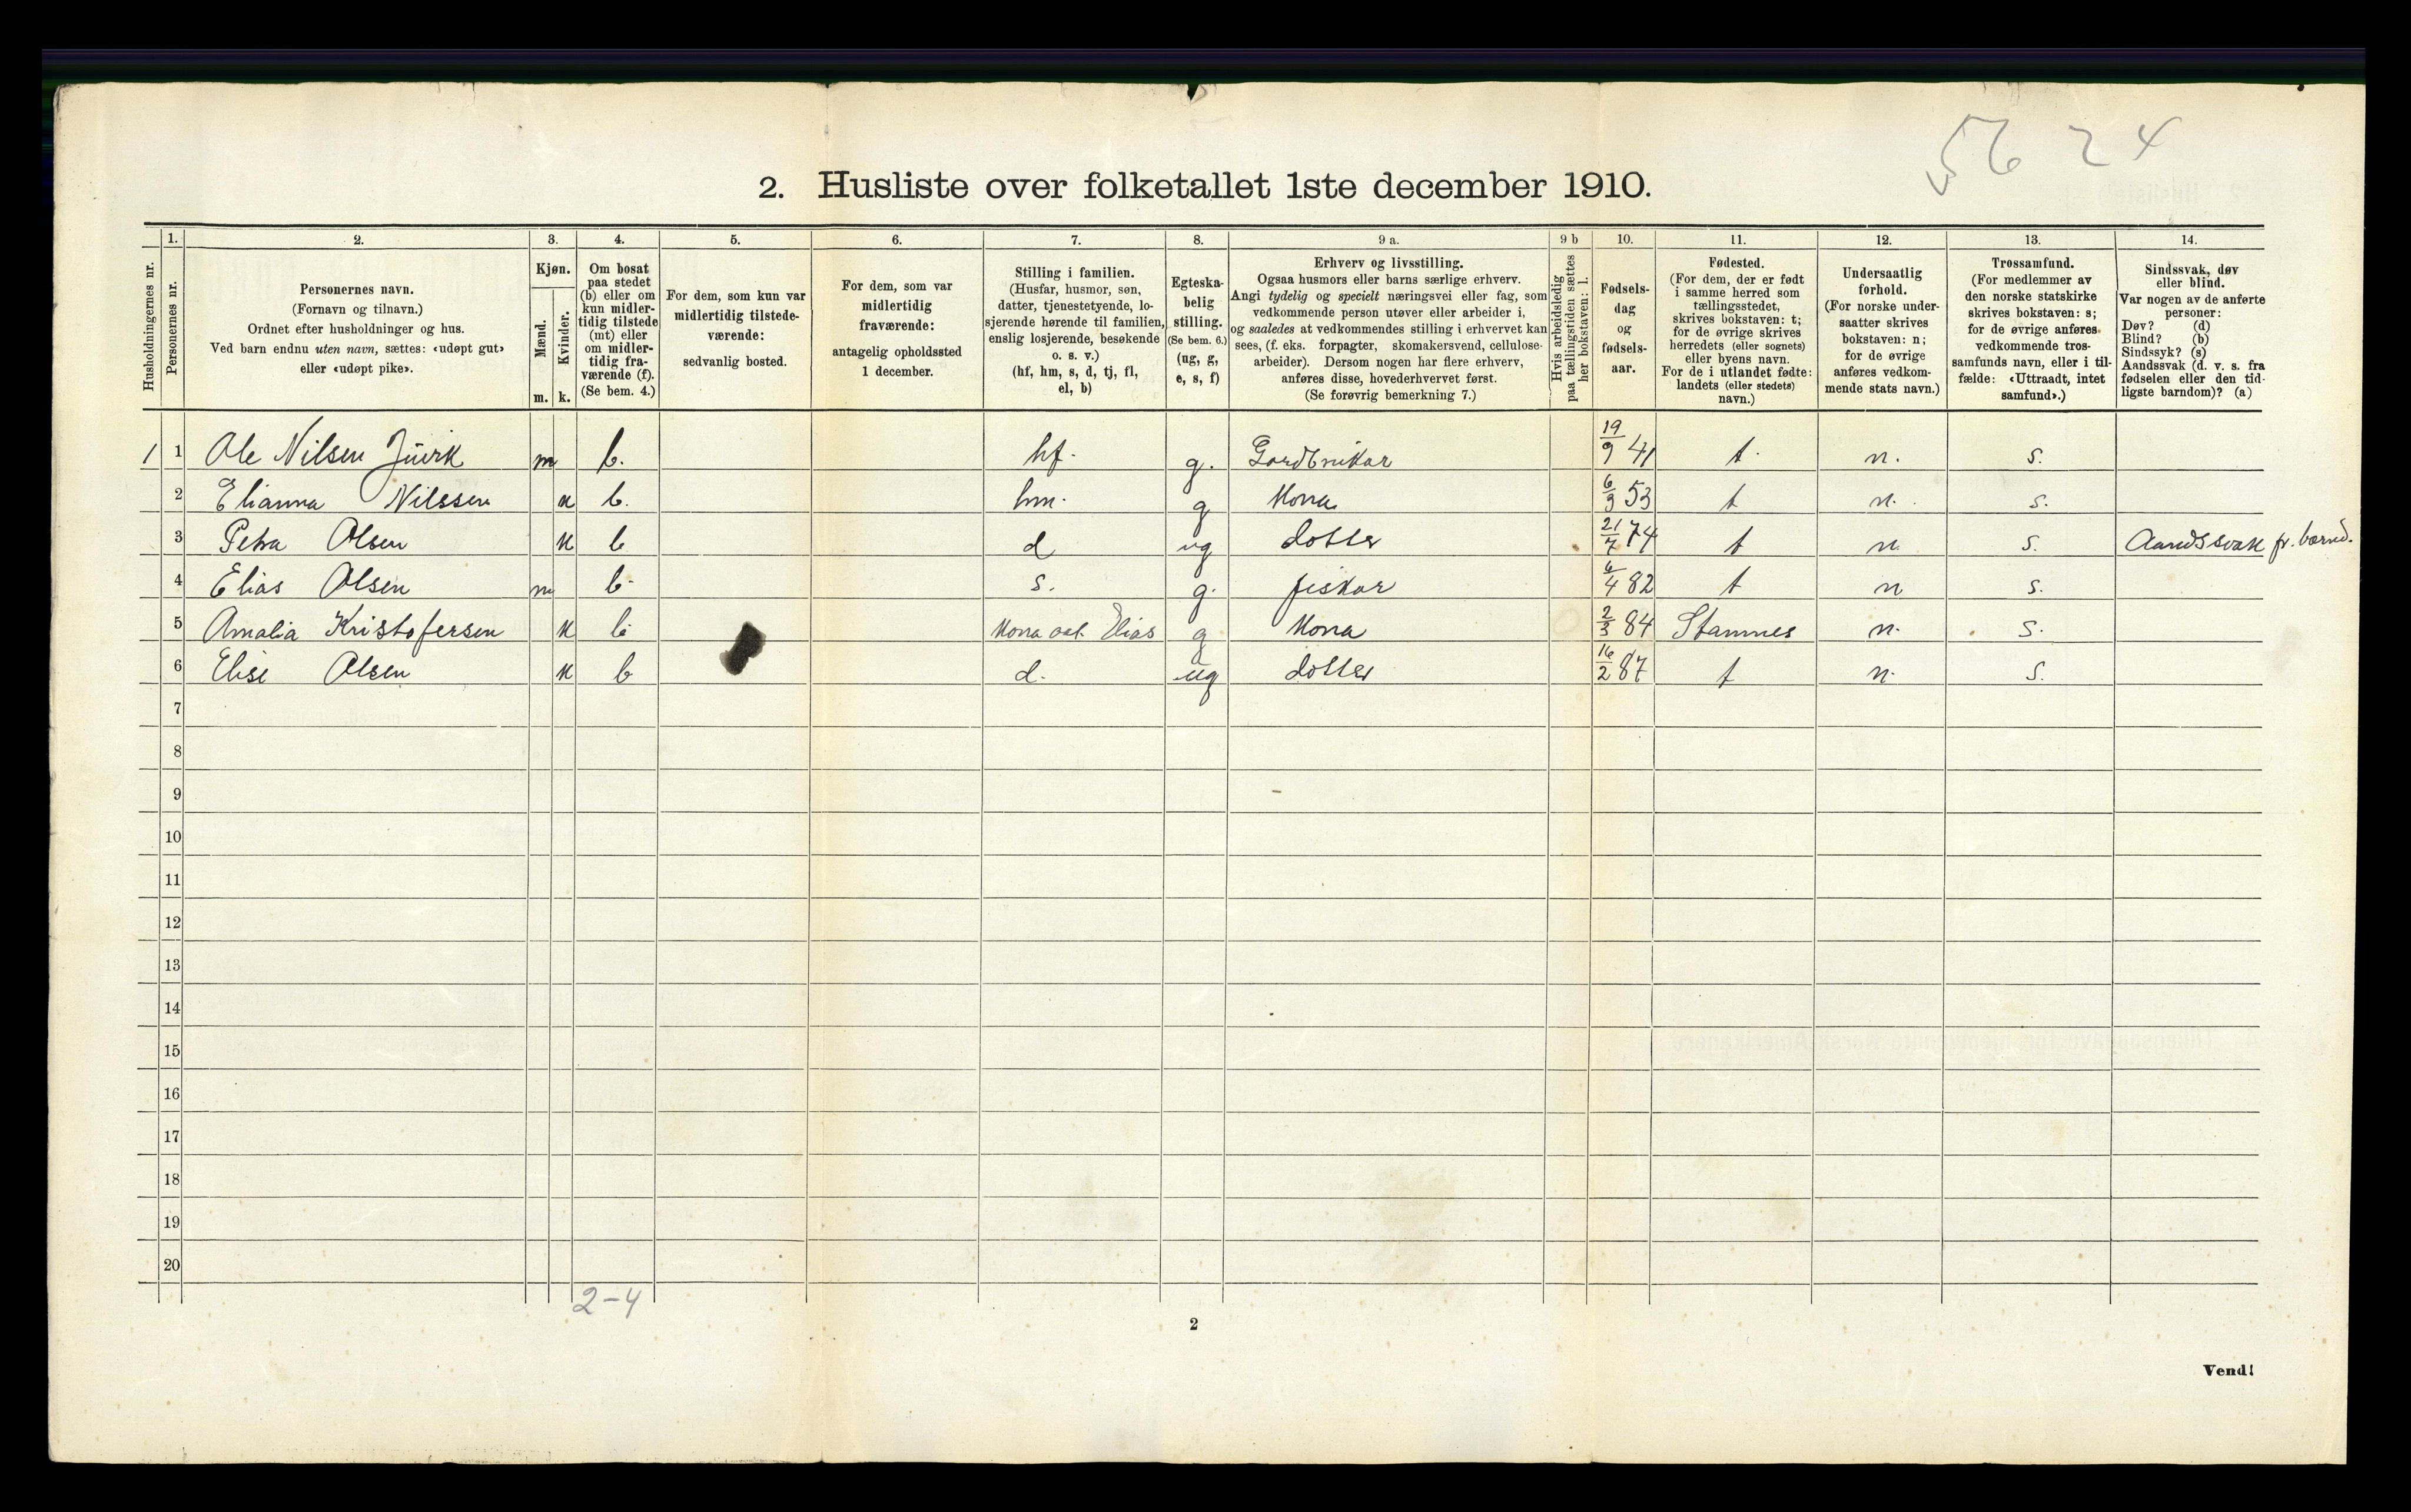 56 24
2. Husliste over folketallet 1ste december 1910.
Husholdningernes nr.
1.
Personernes nr.
2.
Personernes navn.
(Fornavn og tilnavn.)
Ordnet efter husholdninger og hus.
Ved barn endnu uten navn, sættes: «udøpt gut»
eller «udøpt pike».
3.
Kjøn.
Mænd.
Kvinder.
m. k.
4.
Om bosat
paa stedet
(b) eller om
kun midler-
tidig tilstede
(mt) eller
om midler-
tidig fra-
værende (f).
(Se bem. 4.)
5.
For dem, som kun var
midlertidig tilstede-
værende:
sedvanlig bosted.
6.
For dem, som var
midlertidig
fraværende:
antagelig opholdssted
1 december.
7.
Stilling i familien.
(Husfar, husmor, søn,
datter, tjenestetyende, lo-
sjerende hørende til familien,
enslig losjerende, besøkende
o. s. v.)
(hf, hm, s, d, tj, fl,
el, b)
8.
Egteska-
belig
stilling.
(Se bem. 6.)
(ug, g,
e, s, f)
9 a.
Erhverv og livsstilling.
Ogsaa husmors eller barns særlige erhverv.
Angi tydelig og specielt næringsvei eller fag, som
vedkommende person utøver eller arbeider i,
og saaledes at vedkommendes stilling i erhvervet kan
sees, (f. eks. forpagter, skomakersvend, cellulose-
arbeider). Dersom nogen har flere erhverv,
anføres disse, hovederhvervet først.
(Se forøvrig bemerkning 7.)
9 b
Hvis arbeidsledig
paa tællingstiden sættes
her bokstaven: l.
10.
Fødsels-
dag
og
fødsels-
aar.
11.
Fødested.
(For dem, der er født
i samme herred som
tællingsstedet,
skrives bokstaven: t;
for de øvrige skrives
herredets (eller sognets)
eller byens navn.
For de i utlandet fødte:
landets (eller stedets)
navn.)
12.
Undersaatlig
forhold.
(For norske under-
saatter skrives
bokstaven: n;
for de øvrige
anføres vedkom-
mende stats navn.)
13.
Trossamfund.
(For medlemmer av
den norske statskirke
skrives bokstaven: s;
for de øvrige anføres
vedkommende tros-
samfunds navn, eller i til-
fælde: «Uttraadt, intet
samfund».)
14.
Sindssvak, døv
eller blind.
Var nogen av de anførte
personer:
Døv? (d)
Blind? (b)
Sindssyk? (s)
Aandssvak (d. v. s. fra
fødselen eller den tid-
ligste barndom)? (a)
1 1 Ole Nilsen m b. hf. g. Gardbrukar 19/9 41 t. n. s.
2 Elianna Nilssen k b. hm. g Kona 6/3 53 t n. s.
3 Petra Olsen k b d ug dotter 21/7 74 t n. s. Aandssvak fr. barnd.
4 Elias Olsen m b. s. g. fiskar 6/4 82 t n s.
5 Amalia Kristofersen k b. Kona aat Elias g Kona 2/3 84 Stamnes n. s.
6 Elise Olsen k b d. ug dotter 16/2 87 t n. s.
7
8
9
10
11
12
13
14
15
16
17
18
19
20
2-4
2
Vend!